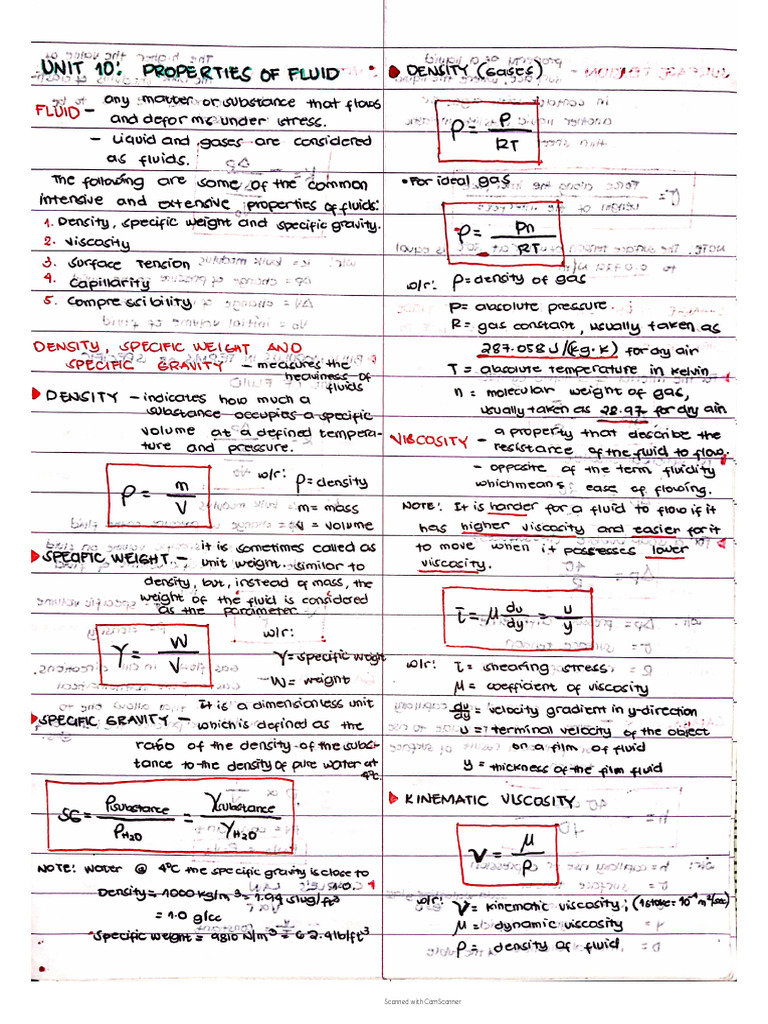 UNIT 10: PROPERTIES OF FLUID
FLUID – any matter or substance that flows
and deforms under stress.
– Liquid and gases are considered
as fluids.
The following are some of the common
intensive and extensive properties of fluids:
1. Density, specific weight and specific gravity.
2. Viscosity
3. Surface Tension
4. Capillarity
5. Compressibility
DENSITY, SPECIFIC WEIGHT AND
SPECIFIC GRAVITY – measures the
heaviness of
fluids
DENSITY – indicates how much a
substance occupies a specific
volume at a defined tempera-
ture and pressure.
ρ = m/V
w/r: ρ = density
m = mass
V = volume
SPECIFIC WEIGHT – it is sometimes called as
unit weight. similar to
density, but, instead of mass, the
weight of the fluid is considered
as the parameter
γ = W/V
w/r:
γ = specific weight
W = weight
SPECIFIC GRAVITY – It is a dimensionless unit
which is defined as the
ratio of the density of the subs-
tance to the density of pure water at
4°C.
SG = ρsubstance/ρH2O = γsubstance/γH2O
NOTE: Water @ 4°C the specific gravity is close to
1.0.
Density = 1000 kg/m³ = 1.94 slug/ft³
= 1.0 g/cc
Specific weight = 9810 N/m³ = 62.4 lb/ft³
DENSITY (GASES)
ρ = P/RT
• For ideal gas
ρ = Pn/RT
w/r: ρ = density of gas
P = absolute pressure
R = gas constant, usually taken as
287.058 J/(kg·K) for dry air
T = absolute temperature in Kelvin
n = molecular weight of gas,
usually taken as 28.97 for dry air
VISCOSITY – a property that describe the
resistance of the fluid to flow.
– opposite of the term fluidity
which means ease of flowing.
NOTE: It is harder for a fluid to flow if it
has higher viscosity and easier for it
to move when it possesses lower
viscosity.
τ = μ du/dy = u/y
w/r: τ = shearing stress
μ = coefficient of viscosity
du/dy = velocity gradient in y-direction
u = terminal velocity of the object
on a film of fluid
y = thickness of the film fluid
KINEMATIC VISCOSITY
ν = μ/ρ
w/r: ν = kinematic viscosity; (1 stoke = 10⁻⁴ m²/sec)
μ = dynamic viscosity
ρ = density of fluid
Scanned with CamScanner